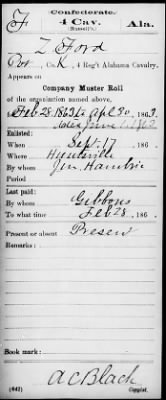 Confederate.
F 4 Cav. Ala.
(Russell's).
Z Ford
Pvt, Co. K, 4 Reg't Alabama Cavalry,
Appears on
Company Muster Roll
of the organization named above,
for Feb 28 1863 to Apl 30, 1863.
dated June 1, 1863
Enlisted:
When Sept. 17, 186 .
Where Huntsville
By whom Jno. Hambric
Period
Last paid:
By whom Gibbons
To what time Feb 28, 186 .
Present or absent Present
Remarks:
Book mark:
A C Black
(642) Copyist.